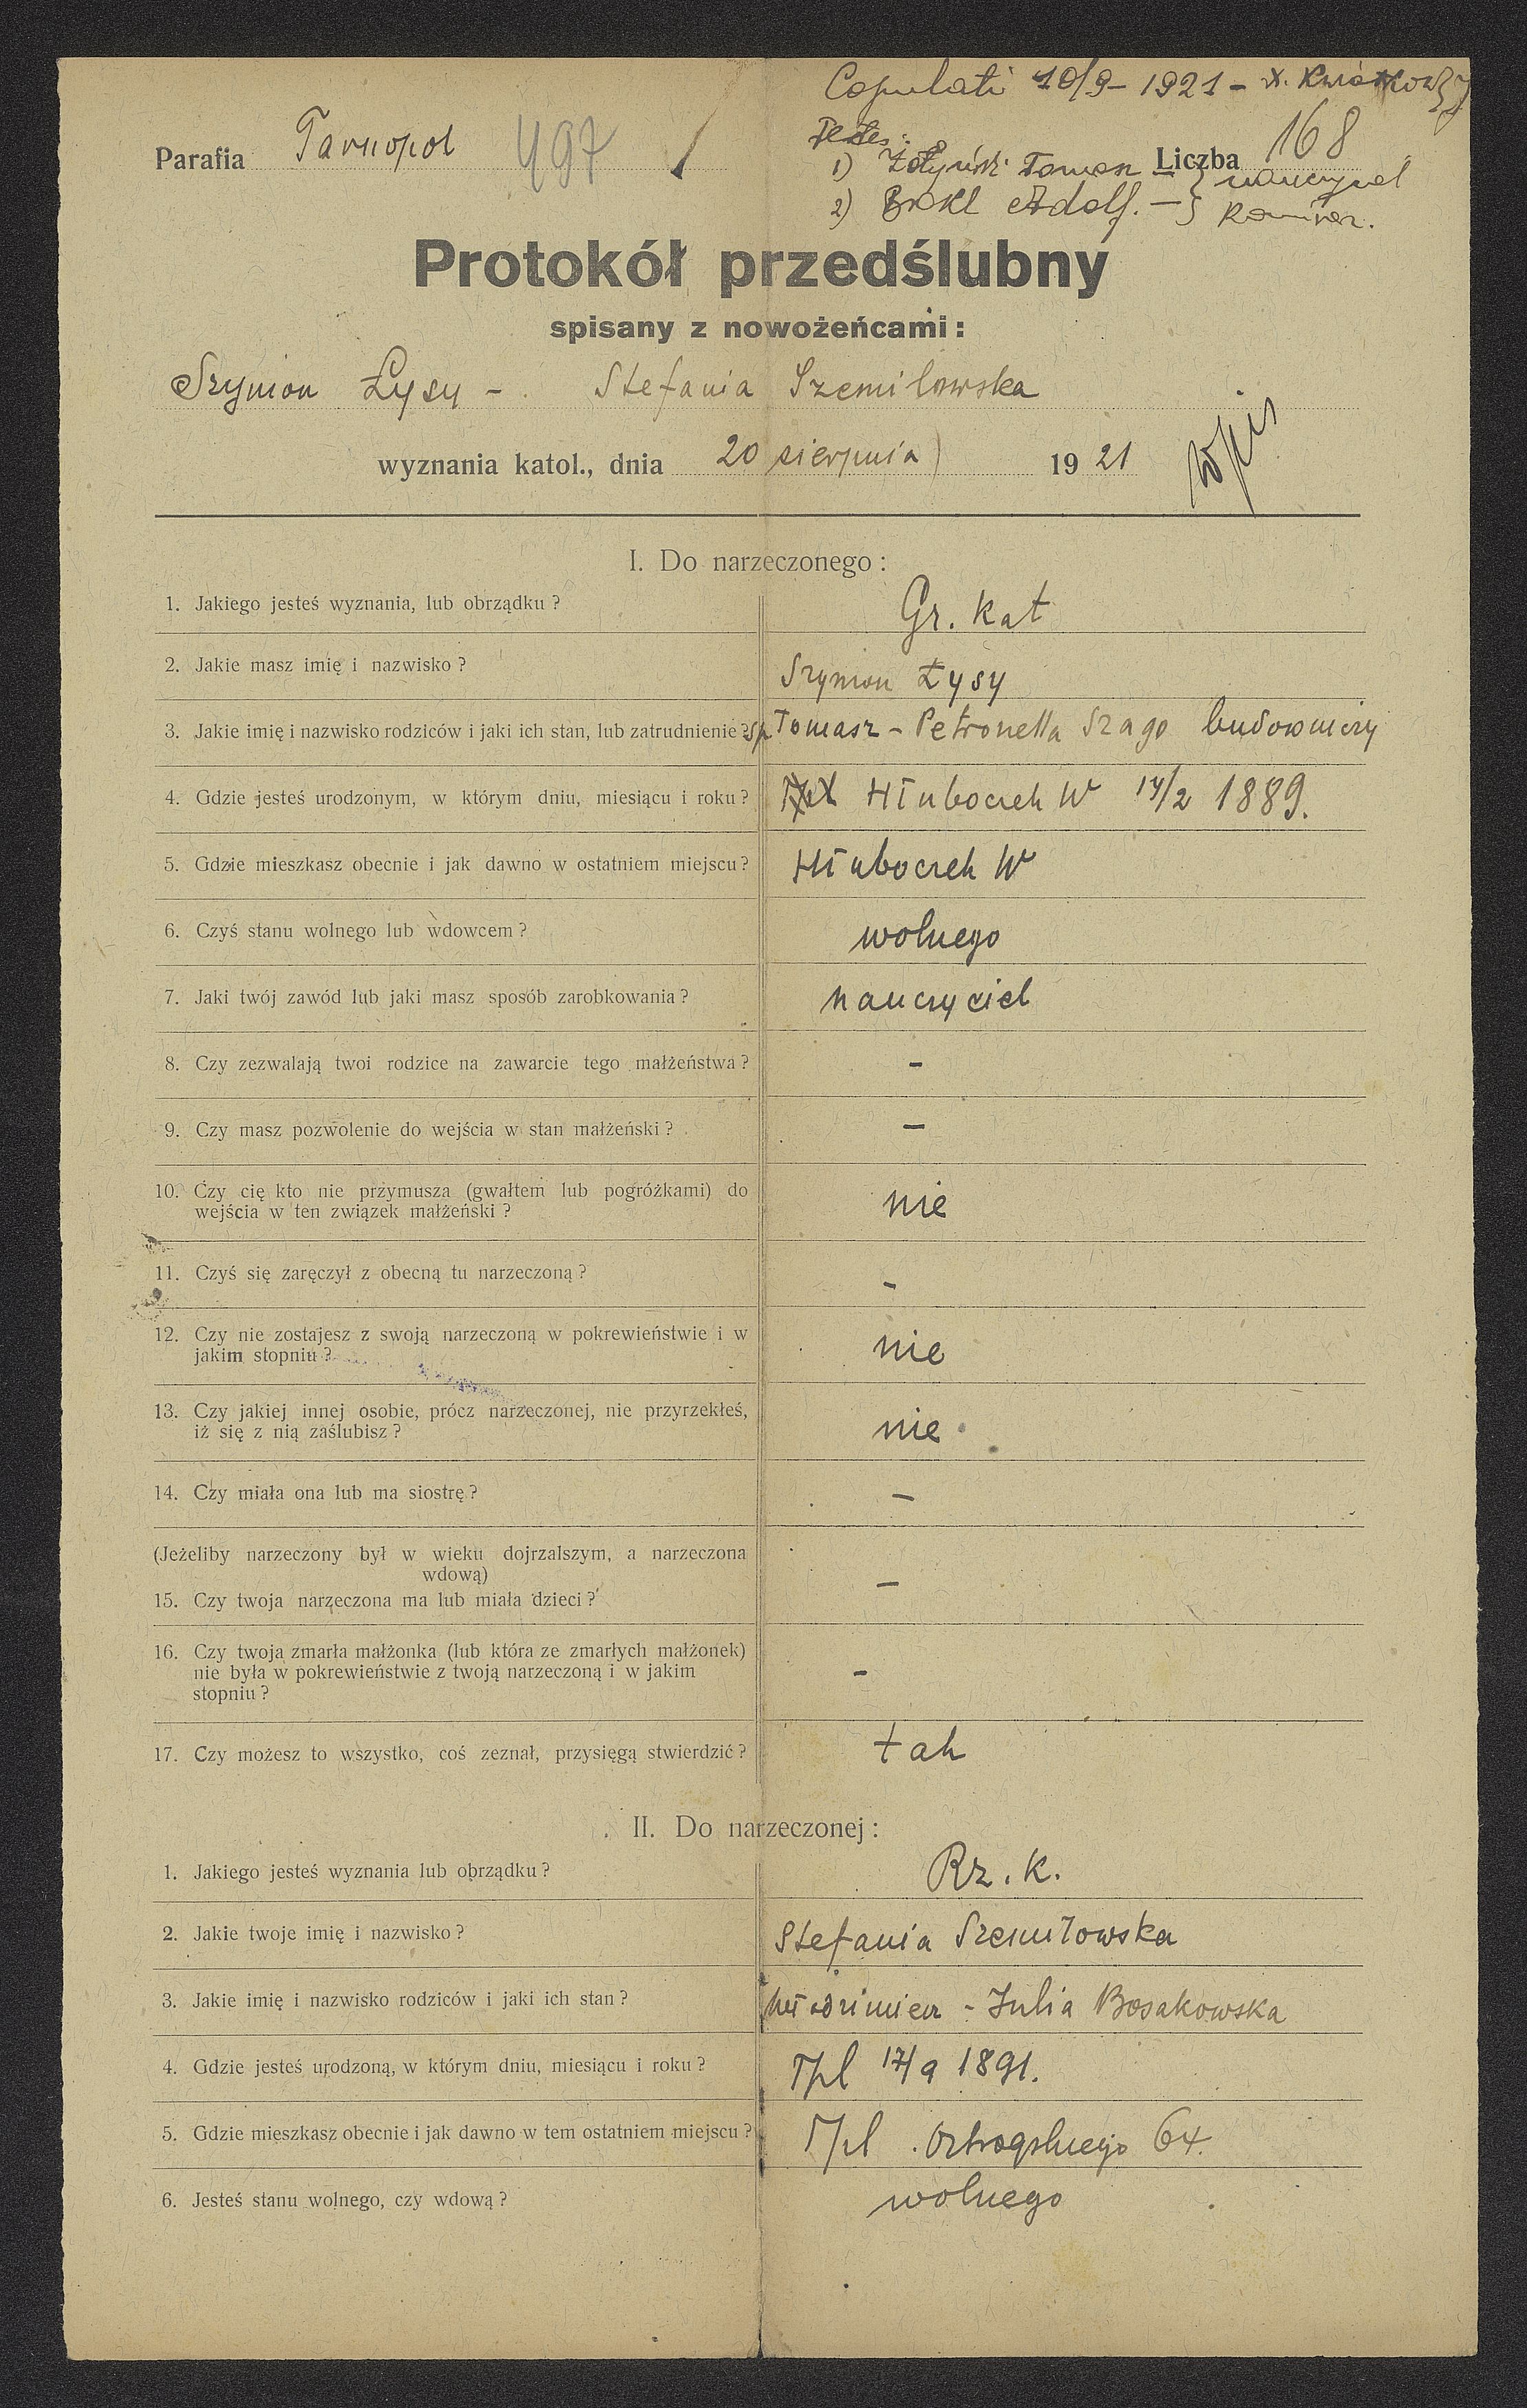 Copulati 10/9 - 1921 - X. Kwiatkowski
Parafia Tarnopol 497
Testes:
Liczba 168
1) Tomasz } nauczyciel
2) Adolf. - }
Protokół przedślubny
spisany z nowożeńcami:
Szymon Łysy - Stefania Szemiłowska
wyznania katol., dnia 20 sierpnia 1921
I. Do narzeczonego:
1. Jakiego jesteś wyznania, lub obrządku? Gr. kat
2. Jakie masz imię i nazwisko? Szymon Łysy
3. Jakie imię i nazwisko rodziców i jaki ich stan, lub zatrudnienie? śp Tomasz - Petronella Szago budowniczy
4. Gdzie jesteś urodzonym, w którym dniu, miesiącu i roku? Hłuboczek W 14/2 1889.
5. Gdzie mieszkasz obecnie i jak dawno w ostatniem miejscu? Hłuboczek W
6. Czyś stanu wolnego lub wdowcem? wolnego
7. Jaki twój zawód lub jaki masz sposób zarobkowania? nauczyciel
8. Czy zezwalają twoi rodzice na zawarcie tego małżeństwa? -
9. Czy masz pozwolenie do wejścia w stan małżeński? -
10. Czy cię kto nie przymusza (gwałtem lub pogróżkami) do
wejścia w ten związek małżeński? nie
11. Czyś się zaręczył z obecną tu narzeczoną? -
12. Czy nie zostajesz z swoją narzeczoną w pokrewieństwie i w
jakim stopniu? nie
13. Czy jakiej innej osobie, prócz narzeczonej, nie przyrzekłeś,
iż się z nią zaślubisz? nie
14. Czy miała ona lub ma siostrę? -
(Jeżeliby narzeczony był w wieku dojrzalszym, a narzeczona
wdową)
15. Czy twoja narzeczona ma lub miała dzieci? -
16. Czy twoja zmarła małżonka (lub która ze zmarłych małżonek)
nie była w pokrewieństwie z twoją narzeczoną i w jakim
stopniu? -
17. Czy możesz to wszystko, coś zeznał, przysięgą stwierdzić? tak
II. Do narzeczonej:
1. Jakiego jesteś wyznania lub obrządku? Rz. k.
2. Jakie twoje imię i nazwisko? Stefania Szemiłowska
3. Jakie imię i nazwisko rodziców i jaki ich stan? Włodzimierz - Julia Bosakowska
4. Gdzie jesteś urodzoną, w którym dniu, miesiącu i roku? Tpl 17/9 1891.
5. Gdzie mieszkasz obecnie i jak dawno w tem ostatniem miejscu? Tpl. Ostrogskiego 64.
6. Jesteś stanu wolnego, czy wdową? wolnego